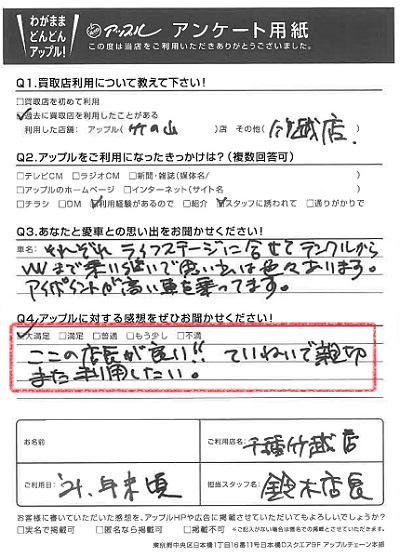 わがまま
どんどん
アップル!
アップル アンケート用紙
この度は当店をご利用いただきありがとうございました。
Q1.買取店利用について教えて下さい!
□買取店を初めて利用
□過去に買取店を利用したことがある
利用した店舗: アップル( 竹の山 )店 その他( 竹越店. )
Q2.アップルをご利用になったきっかけは?(複数回答可)
□テレビCM □ラジオCM □新聞・雑誌(媒体名/ )
□アップルのホームページ □インターネット(サイト名 )
□チラシ □DM □利用経験があるので □紹介 □スタッフに誘われて □通りがかりで
Q3.あなたと愛車との思い出をお聞かせください!
車名: それぞれ ライフステージに合せてテンクルから
VWまで乗り継いで思い出は色々あります。
アイポイントが高い車を乗ってます。
Q4.アップルに対する感想をぜひお聞かせください!
□大満足 □満足 □普通 □もう少し □不満
ここの店長が良い!! ていねいで親切
また利用したい。
お名前
ご利用店名: 千種竹越店
ご利用日: '21. 年末頃
担当スタッフ名: 鈴木店長
お客様に書いていただいた感想を、アップルHPや広告に掲載させていただいてもよろしいでしょうか?
□実名で掲載可 □匿名なら掲載可 □掲載不可 ※ご記入がない場合は匿名での掲載とさせていただきます。
東京都中央区日本橋1丁目16番11号日本橋Dスクエア5F アップルチェーン本部